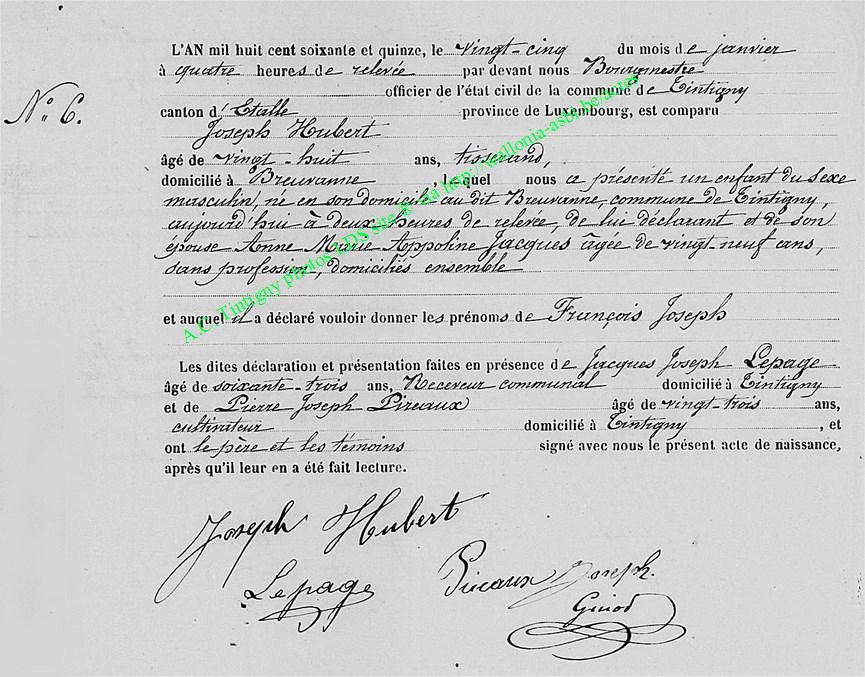 N.° 6.
L'AN mil huit cent soixante et quinze, le vingt-cinq du mois de janvier
à quatre heures de relevée par devant nous Bourgmestre
officier de l'état civil de la commune de Tintigny
canton d'Etalle province de Luxembourg, est comparu
Joseph Hubert
âgé de vingt-huit ans, tisserand,
domicilié à Breuvanne, lequel nous a présenté un enfant du sexe
masculin, né en son domicile au dit Breuvanne, commune de Tintigny,
aujourd'hui à deux heures de relevée, de lui déclarant et de son
épouse Anne Marie Appoline Jacques âgée de vingt-neuf ans,
sans profession, domiciliés ensemble
et auquel il a déclaré vouloir donner les prénoms de François Joseph
Les dites déclaration et présentation faites en présence de Jacques Joseph Lepage
âgé de soixante-trois ans, Receveur communal domicilié à Tintigny
et de Pierre Joseph Pireaux âgé de vingt-trois ans,
cultivateur domicilié à Tintigny, et
ont le père et les témoins signé avec nous le présent acte de naissance,
après qu'il leur en a été fait lecture.
Joseph Hubert
Lepage
Pireaux Joseph.
A.C. Tintigny photos LDS site @ via http://wallonia-asbl.be/actes